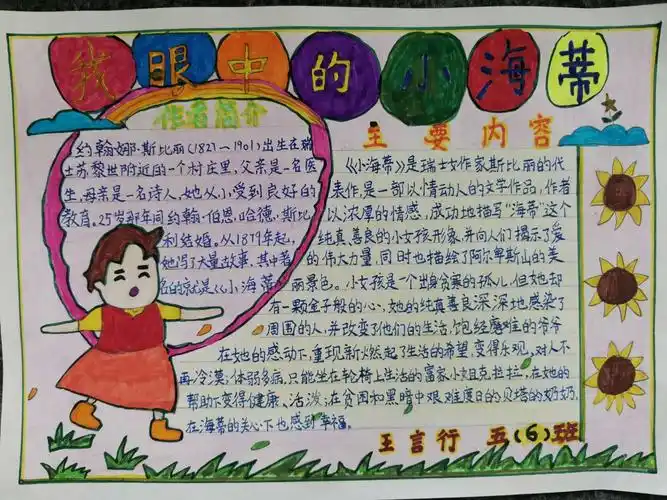 我眼中的小海蒂
作者简介
约翰娜·斯比丽(1827~1901)出生在瑞
士苏黎世附近的一个村庄里,父亲是一名医
生,母亲是一名诗人,她从小受到良好的
教育。25岁那年同约翰·伯恩·哈德·斯比
利结婚。从1879年起,
她写了大量故事,其中著
名的就是《小海蒂》
主要内容
《小海蒂》是瑞士女作家斯比丽的代
表作,是一部以情动人的文学作品,作者
以浓厚的情感,成功地描写"海蒂"这个
纯真善良的小女孩形象,并向人们揭示了爱
的伟大力量,同时也描绘了阿尔卑斯山的美
丽景色。小女孩是一个出身贫寒的孤儿,但她却
有一颗金子般的心,她的纯真善良深深地感染了
周围的人,并改变了他们的生活,饱经磨难的爷爷
在她的感动下,重现新燃起了生活的希望,变得乐观,对人不
再冷漠,体弱多病,只能坐在轮椅上生活的富家小姐克拉拉,在她的
帮助下变得健康、活泼,在贫困和黑暗中艰难度日的贝塔的奶奶,
在海蒂的关心下也感到幸福。
王言行 五(6)班